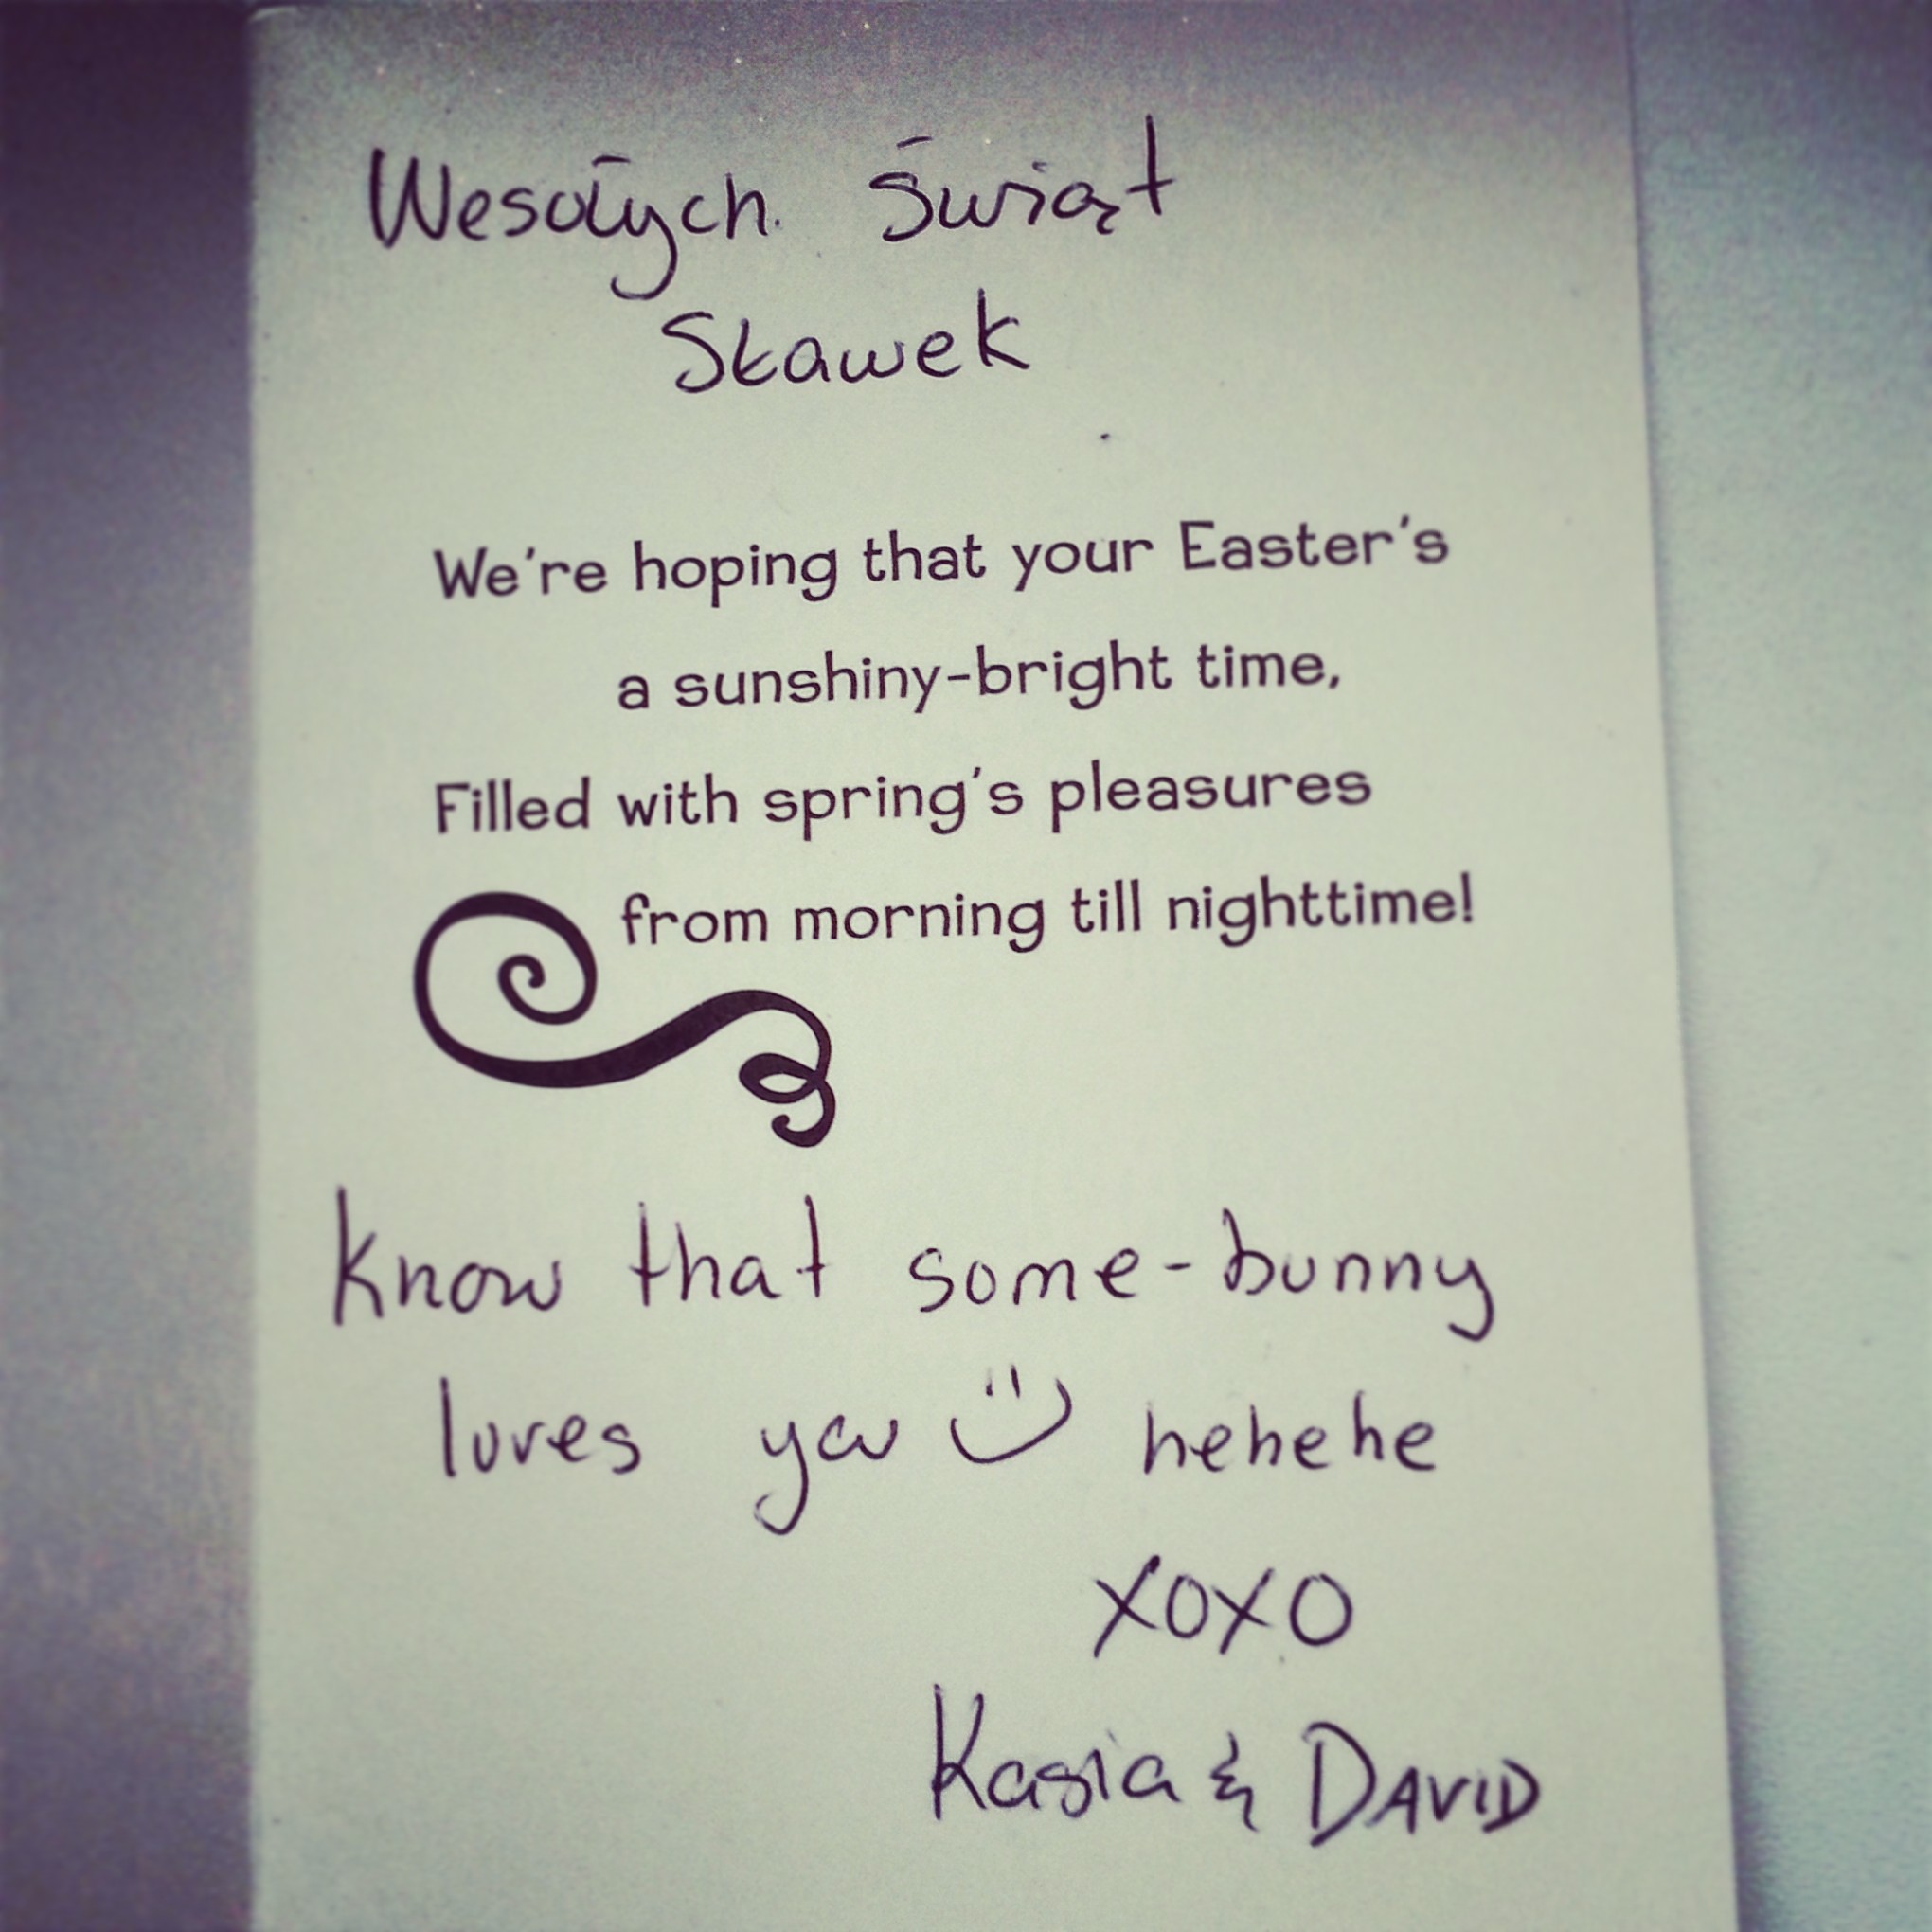 Wesołych Świąt
Sławek
We're hoping that your Easter's
a sunshiny-bright time,
Filled with spring's pleasures
from morning till nighttime!
Know that some-bunny
loves ya :) hehehe
XOXO
Kasia & DAVID